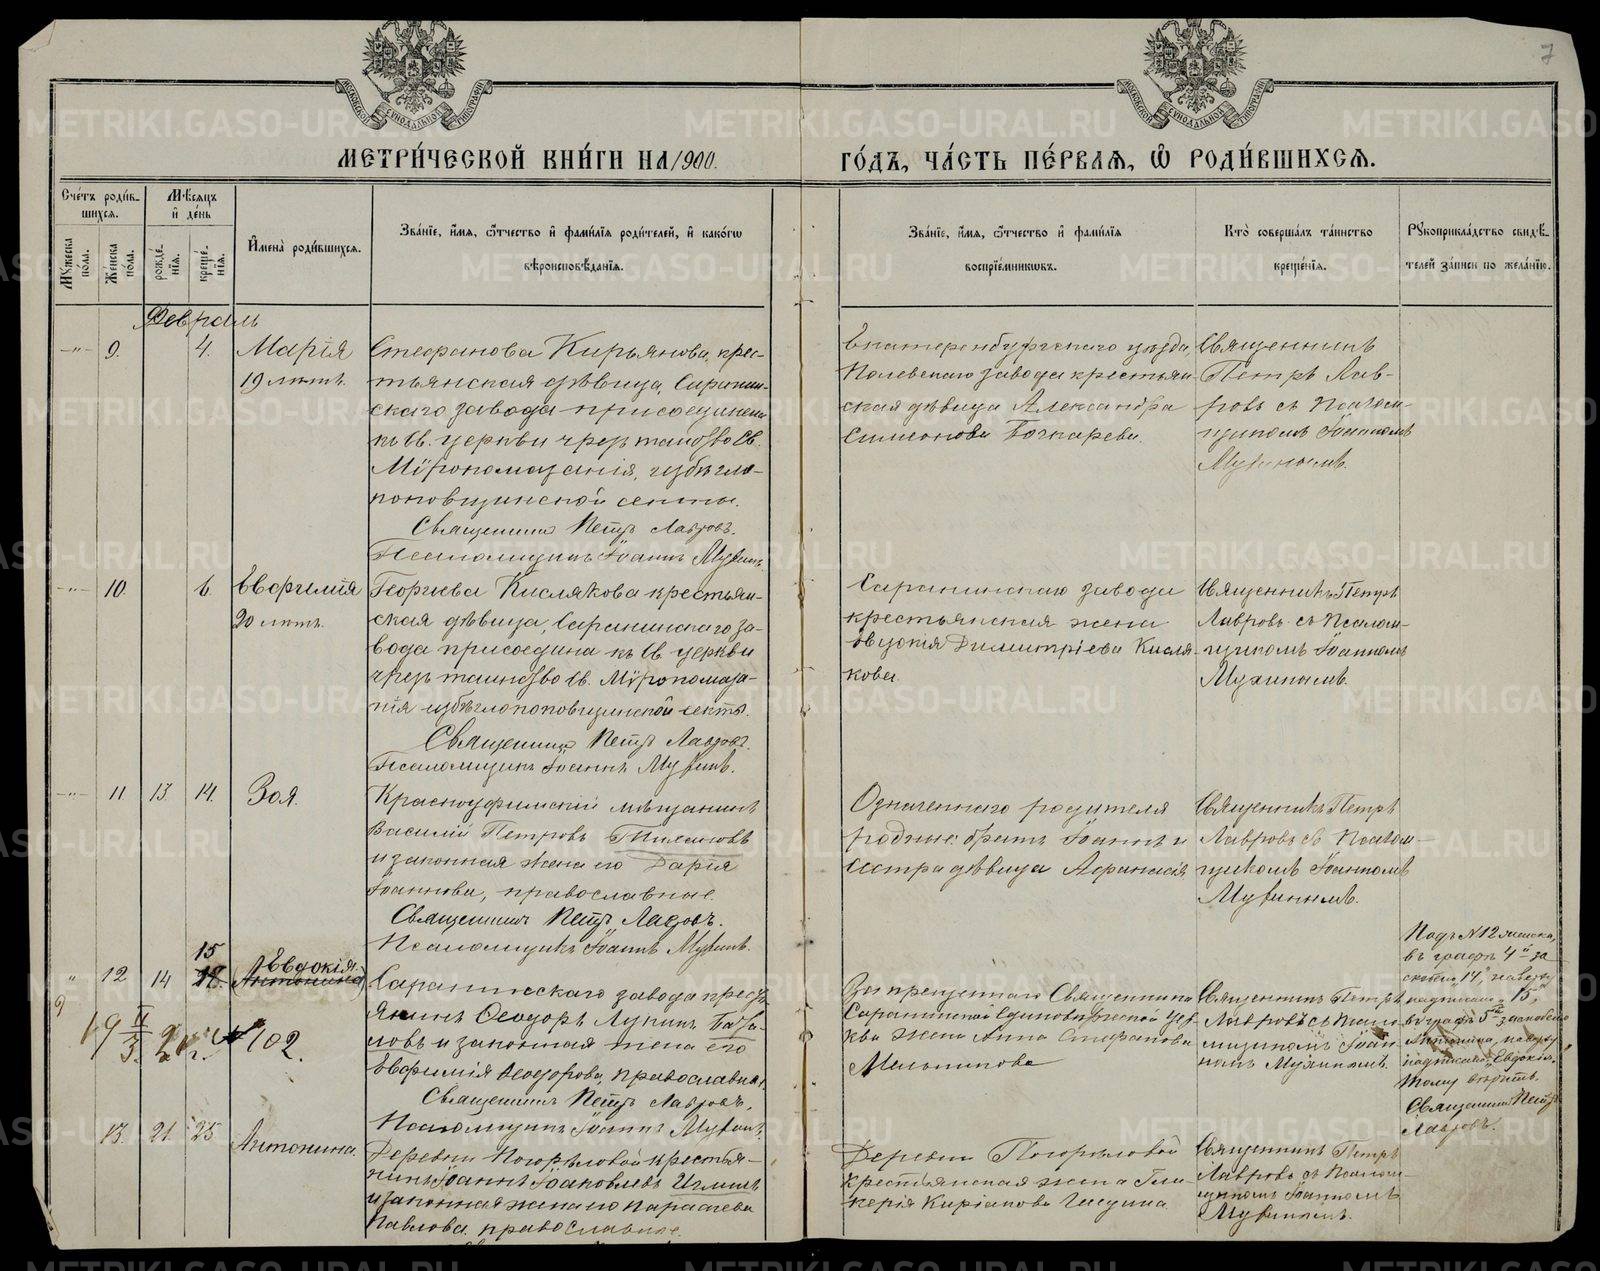 7
МЕТРИ́ЧЕСКОЙ КНИ́ГИ НА 1900.
ГО́ДЪ, ЧА́СТЬ ПЕ́РВАЯ, Ѡ РОДИ́ВШИХСЯ.
Сче́тъ роди́в-
шихся.
Мѣсяцъ
и҆ де́нь
Мꙋжеска
по́ла.
Женска
по́ла.
рожде́-
нїя.
креще́-
нїя.
И҆мена̀ роди́вшихся.
Зва́нїе, и҆́мя, ѻ҆́тчество и҆ фами́лїя роди́телей, и҆ како́гѡ
вѣроисповѣ́данїя.
Зва́нїе, и҆́мя, ѻ҆́тчество и҆ фами́лїя
воспрїе́мникѡвъ.
Кто̀ соверша́лъ та́инство
креще́нїя.
Рꙋкоприкла́дство свидѣ́-
телей за́писи по жела́нїю.
Февраль
9. 4. Марія
19 лѣтъ.
Стефанова Кирьянова, крес-
тьянская дѣвица, Саранин-
скаго завода присоединена
къ Св. церкви чрезъ таинство Св.
Мѵропомазанія, изъ бѣгло-
поповщинской секты.
Священникъ Петръ Лавровъ.
Псаломщикъ Іоаннъ Мухинъ.
Екатеринбургскаго уѣзда
Полевскаго завода крестьян-
ская дѣвица Александра
Симеонова Бочкарева.
Священникъ
Петръ Лав-
ровъ съ Псалом-
щикомъ Іоанномъ
Мухинымъ.
10. 6. Евфимія
20 лѣтъ.
Георгиева Кислякова крестьян-
ская дѣвица, Саранинскаго за-
вода присоединена къ Св. церкви
чрезъ таинство Св. Мѵропомаза-
нія изъ бѣглопоповщинской секты.
Священникъ Петръ Лавровъ.
Псаломщикъ Іоаннъ Мухинъ.
Саранинскаго завода
крестьянская жена
Евдокія Димитріева Кисля-
кова.
Священникъ Петръ
Лавровъ съ Псалом-
щикомъ Іоанномъ
Мухинымъ.
11. 13. 14. Зоя.
Красноуфимскій мѣщанинъ
Василій Петровъ
и законная жена его Дарія
Іоаннова, православные.
Священникъ Петръ Лавровъ.
Псаломщикъ Іоаннъ Мухинъ.
Означеннаго родителя
родные: братъ Іоаннъ и
сестра дѣвица Афанасія.
Священникъ Петръ
Лавровъ съ Псалом-
щикомъ Іоанномъ
Мухинымъ.
15
12 14 18. Евдокія.
Антонина
Саранинскаго завода кресть-
янинъ Ѳеодоръ Лукинъ
и законная жена его
Евфимія Ѳеодорова, православные
Священникъ Петръ Лавровъ.
Псаломщикъ Іоаннъ Мухинъ.
Священника
Саранинской Единовѣрческой Цер-
кви жена Анна Стефанова
Мельникова
Священникъ Петръ
Лавровъ съ Псало-
мщикомъ Іоан-
номъ Мухинымъ.
Подъ №12 женска,
въ графѣ 4й за-
14, наверху
надписано 15,
въ графѣ 5й
Антонина, наверху
надписано Евдокія.
тому вѣрить.
Священникъ Петръ
Лавровъ.
19 II/3 102.
13. 21. 25 Антонина.
Деревни Погорѣловой крестья-
нинъ Іоаннъ Іаковлевъ
и законная жена его Параскева
Павлова, православные.
Деревни Погорѣловой
крестьянская жена Гли-
керія Киріакова
Священникъ Петръ
Лавровъ съ Псалом-
щикомъ Іоанномъ
Мухинымъ.
METRIKI.GASO-URAL.RU